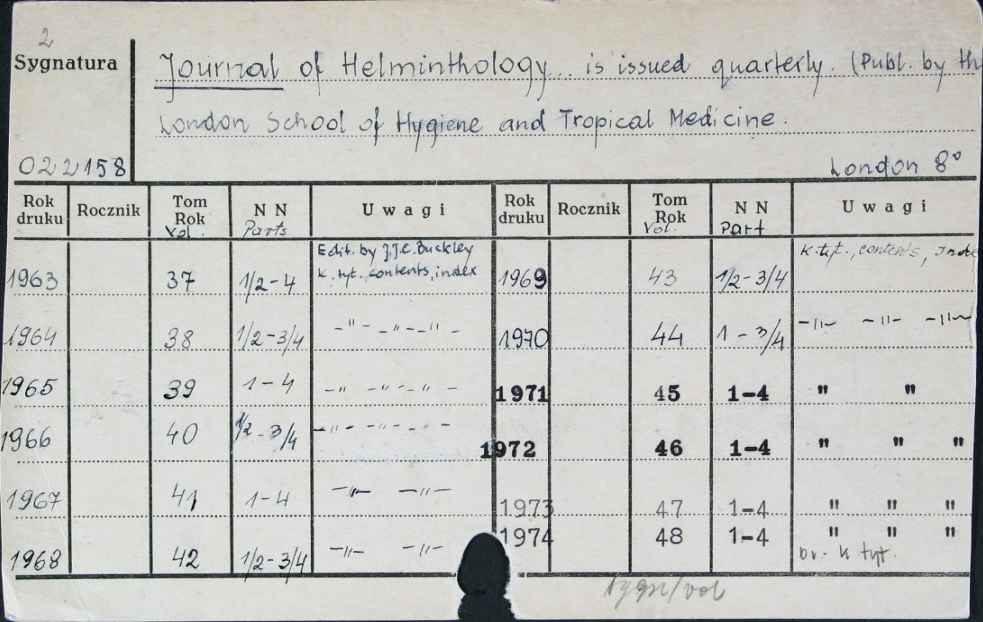 2
Sygnatura
Journal of Helminthology... is issued quarterly. (Publ. by th
London School of Hygiene and Tropical Medicine.
022158
London 8°
Rok druku Rocznik Tom Rok Vol. NN Parts Uwagi Rok druku Rocznik Tom Rok Vol. NN Part Uwagi
1963 37 1/2-4 Edit. by J.J.C. Buckley k. tyt., contents, index 1969 43 1/2-3/4 k. tyt., contents, inde
1964 38 1/2-3/4 -"- -"- -"- 1970 44 1-3/4 -"- -"- -"-
1965 39 1-4 -"- -"- -"- 1971 45 1-4 " "
1966 40 1/2-3/4 -"- -"- -"- 1972 46 1-4 " " "
1967 41 1-4 -"- -"- 1973 47 1-4 " " "
1968 42 1/2-3/4 -"- -"- 1974 48 1-4 " " "
br. k tyt.